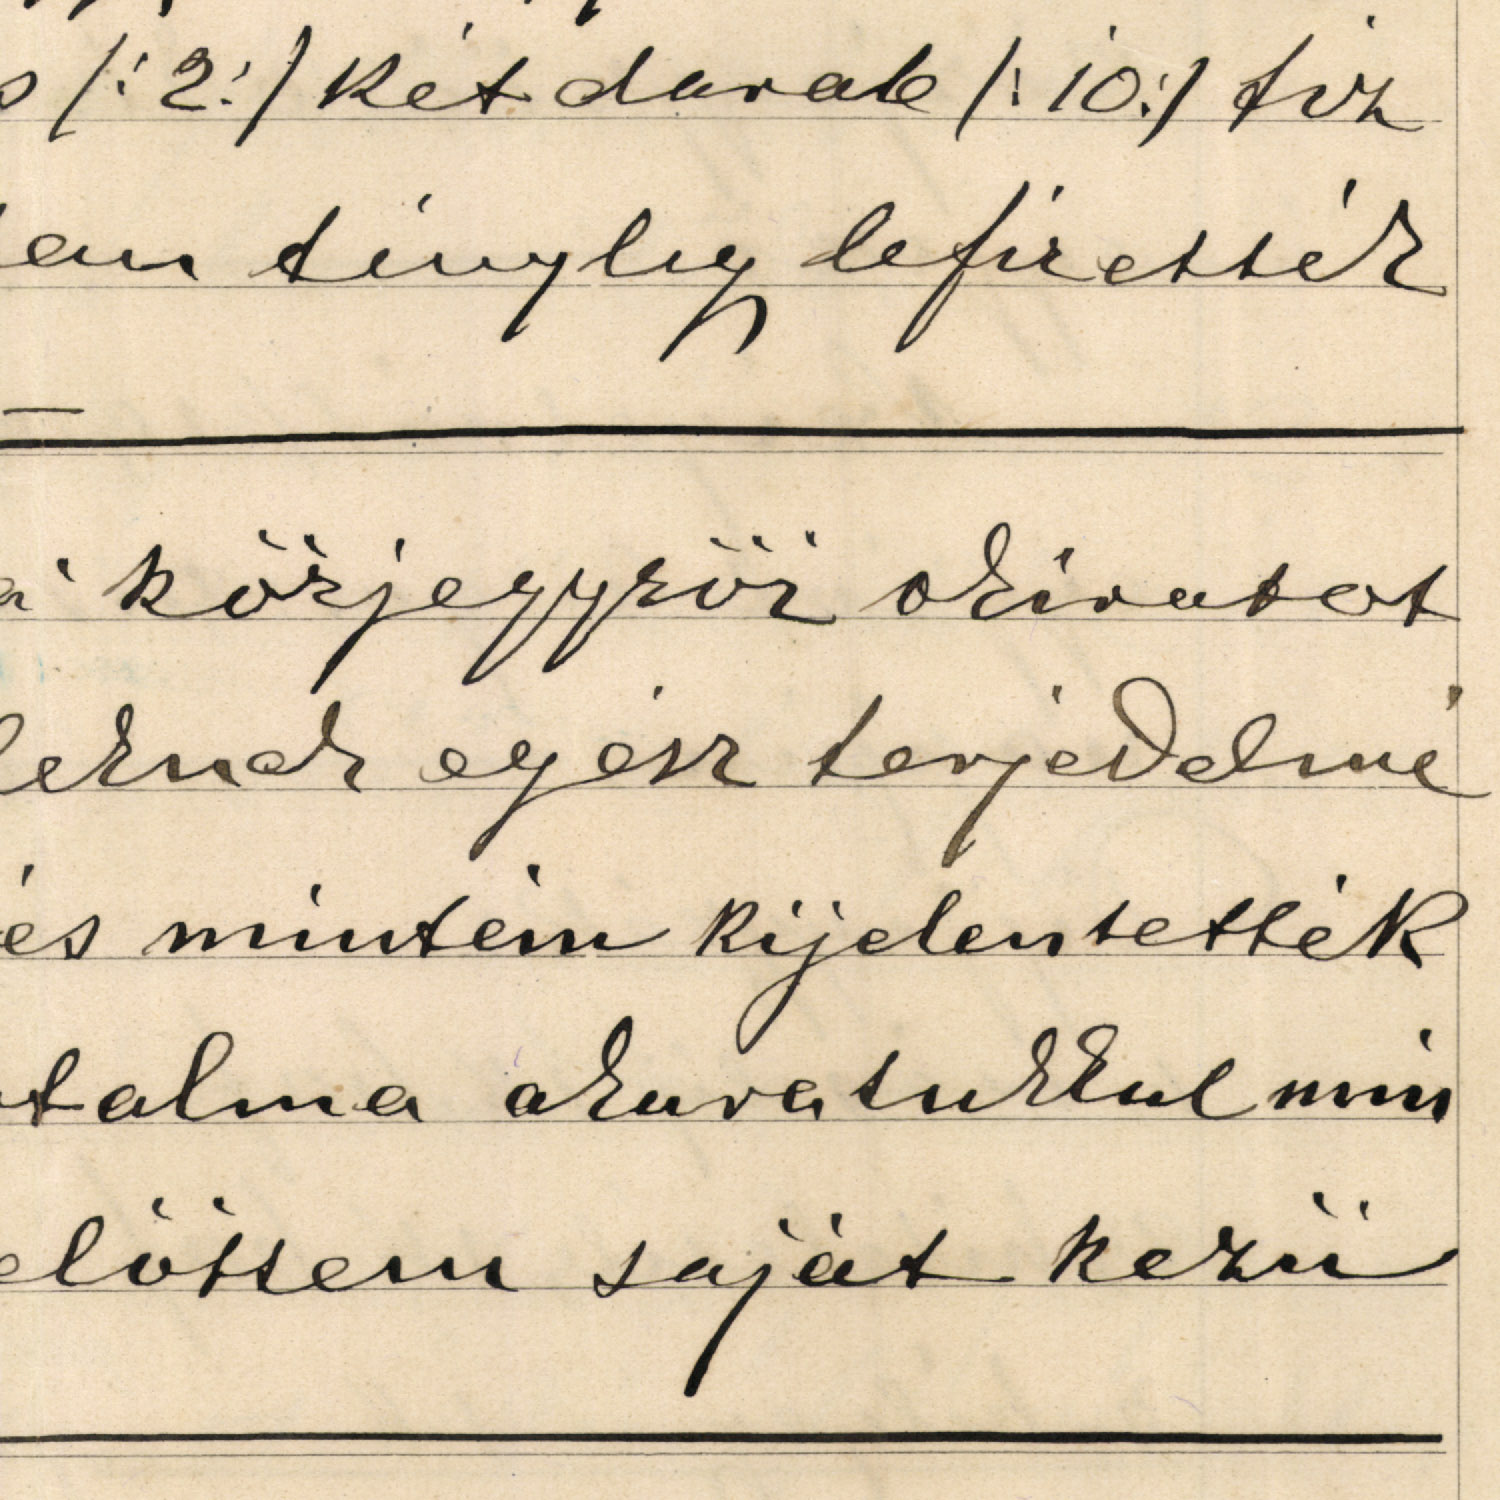 s /:2:/ két darab /:10:/ tíz
an tényleg lefizették
a' közjegyzöi okiratot
leknek egész terjedelmé
és mintém kijelentették
talma akaratukkal min
elöttem saját kezü